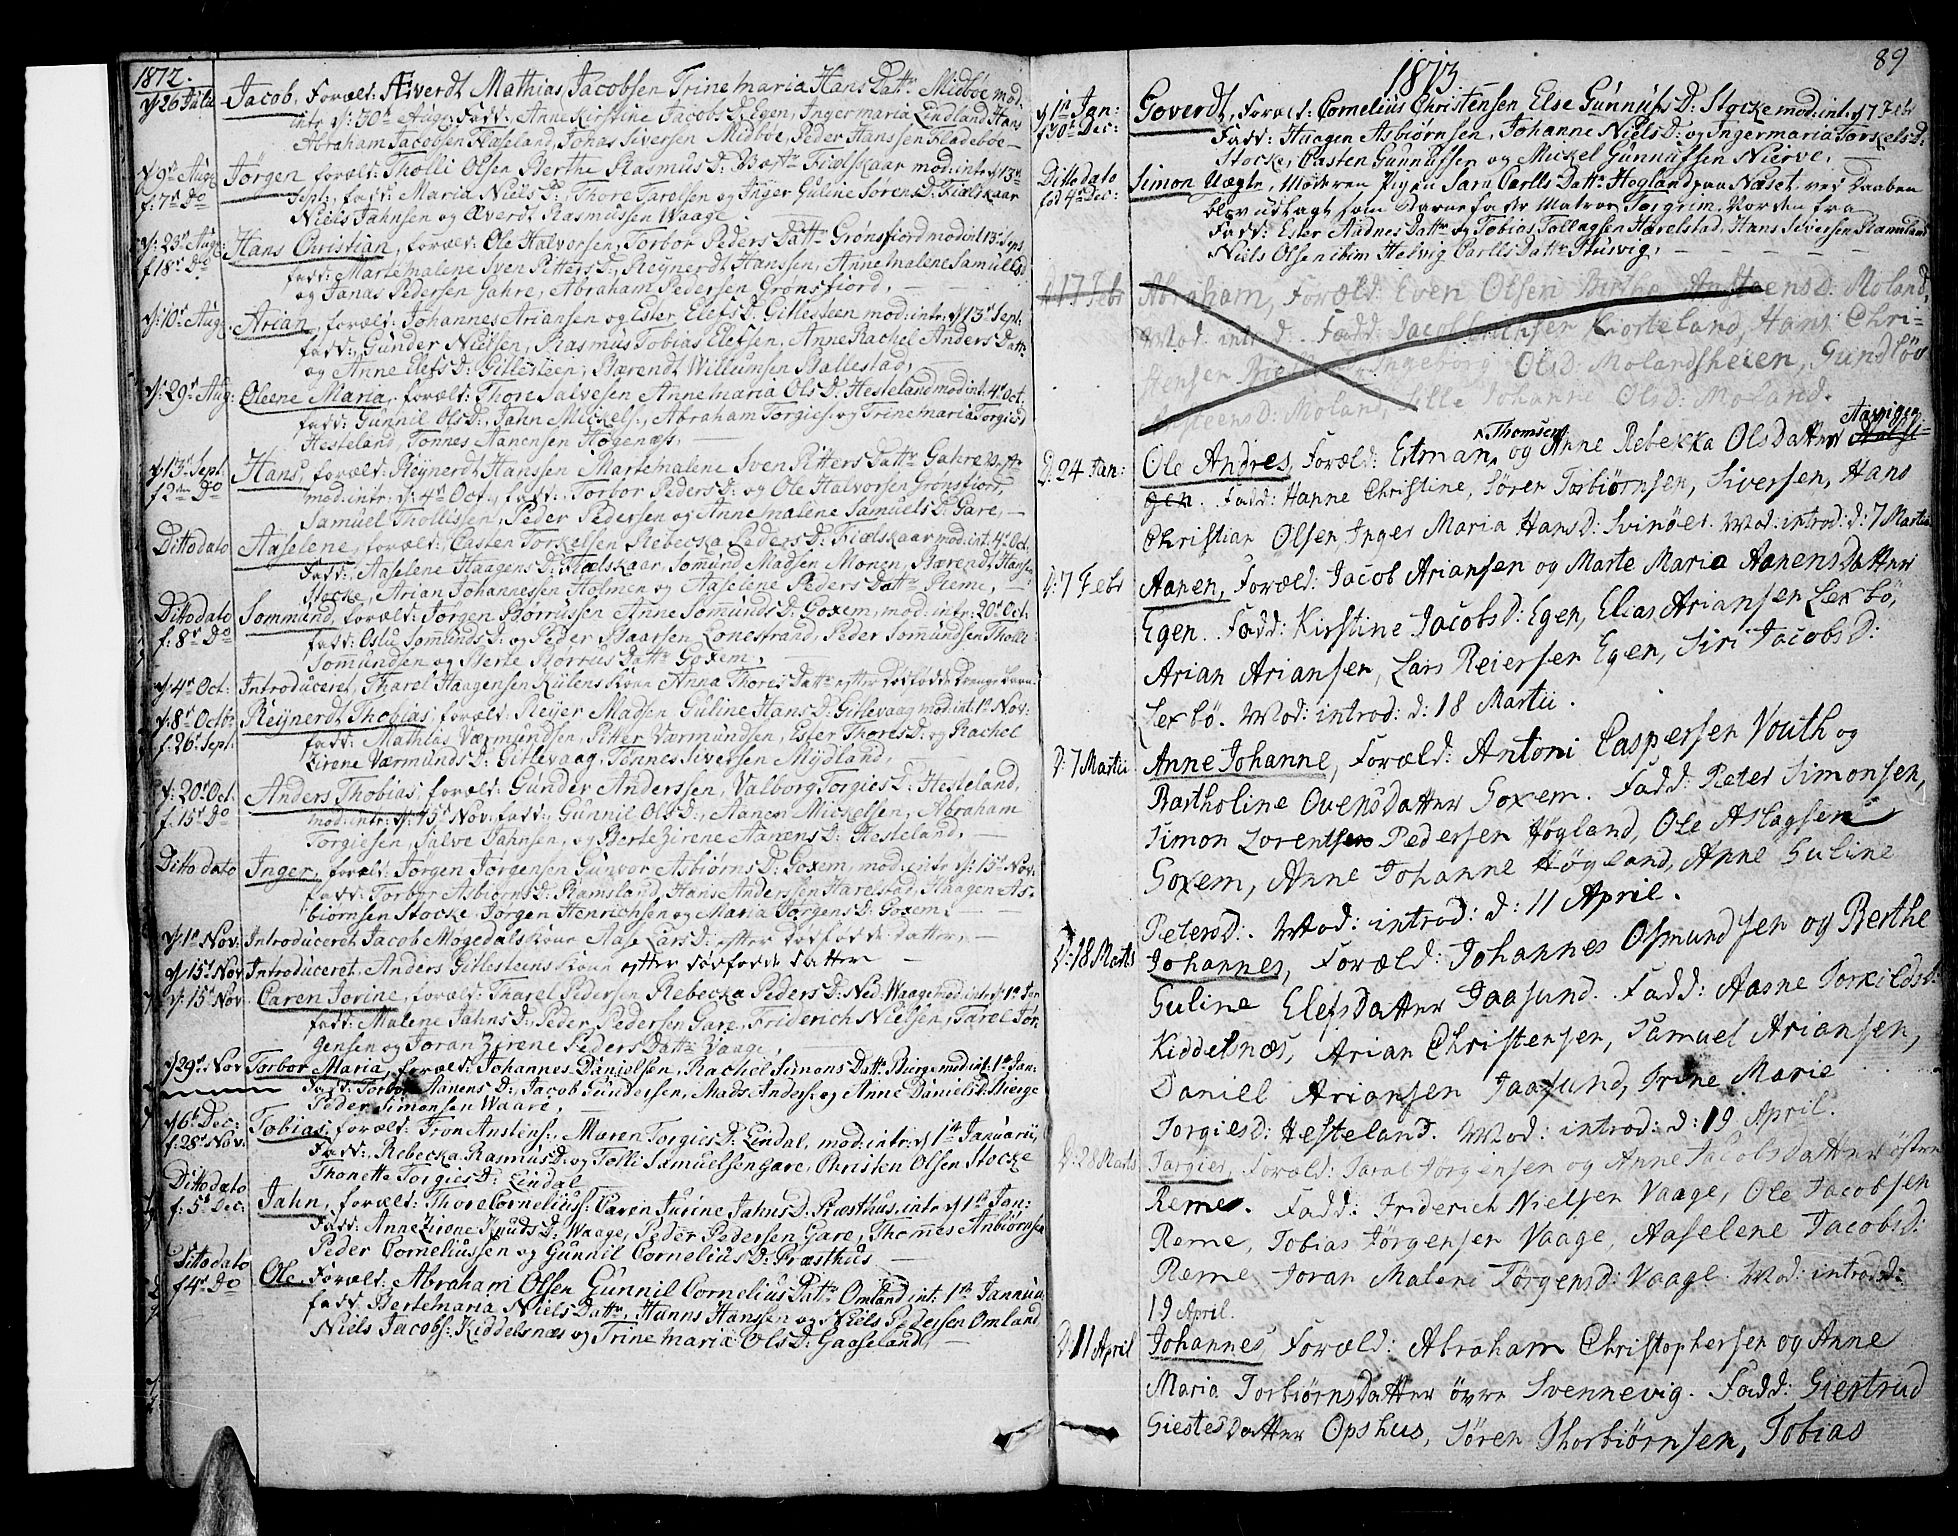 1812.
d 26 Julii Jacob, Foræld: Æverdt Mathias Jacobsen Trine maria Hans Dattr Midbøe mod.
intr d: 30te Augr. Fadd: Anne Kirstine Jacobs D. Egen, Ingermaria Lindland, Hans
Abraham Jacobsen Haaseland, Jonas Siversen Midbøe, Peder Hanssen Fladeboe
d 9de Aug. Jørgen foræld: Tholli Olsen Berthe Rasmus D: Fiælskaar mod. intr d 13de
f: 7de Do Sept: fadd: Maria Niels D:, Thore Tarelsen og Inger Guline Sørens D: Fiælskaar
Niels Jahnsen og Æverdt Rasmussen Waage
d: 23de Aug: Hans Christian, foræld: Ole Halvorsen, Torbor Peders Dattr Grønsfiord mod. int 13de Sept.
f 18de Do fadd: Martemalene Sven Pitters D:, Reynerdt Hanssen, Annemalene Samuels D
og Jonas Pedersen Jahre, Abraham Pedersen Grønsfiord,
d: 10de Aug: Arian, foræld: Johannes Ariansen og Ester Elefs D: Gitlesteen mod: intr: d 13de Sept:
fadd:, Gunder Nielsen, Rasmus Tobias Elefsen, Anne Rachel Anders Dattr
og Anne Elefs D: Gitlesteen, Bærendt Willumsen Ballestad,
d: 29de Aug: Oleene Maria, foræld: Thore Salvesen Anne maria Ols D: Hesteland mod. int 4de Oct.
fadd: Gunnil Ols D:, Jahn Mickels:, Abraham Torgies: og Trine maria Torgies D
Hesteland, Tønnes Aanensen Høgenæs,
d: 13de Sept: Hans, foræld: Reynerdt Hanssen Martemalene Sven Pitters Dattr Gahre
f 2den Do mod: intr: d: 4de Oct, fadd: Torbor Peders D: og Ole Halvorsen Grønsfiord,
Samuel Thollissen, Peder Pedersen og Annemalene Samuels D: Gare,
Ditto dato Aaselene, foræld: Casten Torkelsen Rebecka Peders D: Fiælskaar mod: int. 4de Oct.
Fadd:, Aaselene Haagens D: Fiælskaar, Somund Madsen Monen, Bærendt Hansen
Stocke, Arian Johannessen Holmen og Aaselene Peders Dattr Reme,
Ditto dato Sommund, foræld: Jørgen Børrussen Anne Somunds D: Goxem, mod: intr: 20de Oct.
f: 8de Do fadd: Oslu Somunds D: og Peder Baarsen Lonestrand, Peder Sommundsen Tholli
Sommundsen og Berte Børrus Dattr Goxem,
d: 4de Oct: Introduceret, Tharel Haagensen Kone Anna Thores Dattr efter dødfødde Drenge Barn
d: 8de Octbr, Reynerdt Thobias, foræld: Reyer Madsen Guline Hans D: Gitlevaag mod: int. 1ste Nov:
f: 26de Sept. fadd: Mathias Værmundsen, Pitter Værmundsen, Ester Thores D: og Rachel
Zirene Værmunds D: Gitlevaag, Tønnes Siversen Mydland,
d: 20de Oct: Anders Thobias, foræld: Gunder Anderssen, Valborg Torgies D: Hesteland,
f: 15de Do mod: intr: d: 15de Nov, fadd: Gunnil Ols D:, Aanen Mickelsen, Abraham
Torgiesen, Salve Jahnsen, og Berte Zirene Aanens D: Hesteland,
Ditto dato Inger, foræld: Jørgen Jørgensen Gunvor Asbiørns D: Goxem, mod: intr d: 15de Nov.
fadd: Torbor Asbiørns D: Ramsland, Hans Anderssen Harelstad, Haagen As-
biørnsen Stocke Jørgen Henrichsen og Maria Jørgens D: Goxem.
d 1ste Nov: Introduceret Jacob Møgedals kone Aase Lars D: efter dødfødde datter,
d 15de Nov Introduceret, Anders Gitlesteens kone efter dødfødde datter
d: 15de Nov Caren Jorine, foræld: Tharel Pedersen Rebecka Peders D: Ned. Waage mod: intr: d 1ste Jan
fadd: Malene Jahns D: Peder Pedersen Gare, Friderich Nielsen, Tarel Jør-
gensen og Joran Zirene Peders Dattr Vaage,
d 29de Nov Torbor Maria, foræld: Johannes Danielsen, Rachel Simons Dattr Bierge mod int: 1ste Jan:
Fadd: Torbor Aanens D: Jacob Gundersen, Mads Anders: og Anne Daniels D: Bierge
Peder Simonsen Waare,
d 6te Dec: Tobias, foræld: Tron Anstens:, Maren Torgies D: Lindal, mod: intr: d 1ste Januarii,
f: 28de Nov: Fadd:, Rebecka Rasmus D: og Tolli Samuelsen Gare, Christen Olsen Stocke
Thonette Torgies D: Lindal
Ditto dato Jahn, foræld: Thore Cornelius: Caren Jurine Jahns D. Præsthus, intr d 1ste Jan:
f: 5te Dec: Fadd: Anne Zirene Knuds D: Waage, Peder Pedersen Gare, Thomes Anbiørnsen
Peder Corneliussen og Gunnil Cornelius D: Præsthus
Ditto dato Ole, Foræld: Abraham Olsen Gunnil Cornelius Dattr Omland int: 1ste Jannuar
f 4de Do fadd: Berte maria Niels Dattr, Hanns Hanssen og Niels Pedersen Omland
Niels Jacobs: Kiddelsnæs og Trine maria Ols D: Gaaseland,
89
1813
d 1ste Jan: Goverdt, Foræld: Cornelius Christensen Else Gunnufs D: Stocke mod: int: d 7 Febr
f 30te Dec: Fadd: Haagen Asbiørnsen, Johanne Niels D: og Ingermaria Torkels D:
Stocke, Casten Gunnufsen og Mickel Gunnufsen Nierve,
Ditto dato Simon Uægte, Moderen Pigen Sara Carlls Dattr Hegland paa Næset, ved Daaben
fød 4de Dec: blev udlagt som Barnefader Matros Torgrim Norden fra
Fadd: Ester Audnes Dattr og Tobias Tollagsen Harelstad, Hans Siversen Ramsland
Niels Olsen ibim Helvig Carlls Dattr Husvig,
d 17 Febr Abraham, Foræld: Even Olsen Birthe Anstoensd: Moland,
Mod: intr: d: Fadd: Jacob Erichsen Kiorteland, Hans Chri-
stensen Ingeborg Olsd: Molandsheien, Gundløv
Moland, Sille Johanne Olsd: Moland.
D: 24 Jan: Ole Andres, Foræld: Estman Thomsen og Anne Rebekka Olsdatter
gen. Fadd: Hanne Christine, Søren Torbiørnsen, Siversen, Hans
Christian Olsen, Inger Maria Hansd: Svinøer. Mod: introd: d: 7 Martii
D: 7 Febr Aanen, Foræld: Jacob Ariansen og Marte Maria Aanensdatter
Egen. Fadd: Kirstine Jacobsd: Egen, Elias Ariansen Lexbö,
Arian Ariansen, Lars Reiersen Egen, Siri Jacobsd:
Lexbö. Mod: introd: d: 18 Martii.
D: 7 Martii Anne Johanne, Foræld: Antoni Caspersen Vouth og
Bartholine Ovensdatter Goxem. Fadd: Peter Simonsen,
Simon Lorentsen Pedersen Høgland, Ole Aslagsen
Goxem, Anne Johanne Høgland, Anne Guline
Petersd:. Mod: introd: d: 11 April.
D: 18 Marts Johannes, Foræld: Johannes Osmundsen og Berthe
Guline Elefsdatter Jaasund. Fadd: Aasne Torkildsd:
Kiddelsnæs, Arian Christensen, Samuel Ariansen,
Daniel Ariansen Jaasund, Trine Marie
Torgiesd: Hesteland. Mod: introd: d: 19 April.
D: 28 Marts Targier, Foræld: Taral Jørgensen og Anne Jacobsdatter østre
Reme. Fadd: Friderich Nielsen Vaage, Ole Jacobsen
Reme, Tobias Jørgensen Vaage, Aaselene Jacobsd:
Reme, Joran Malene Jørgensd: Vaage. Mod: introd d:
19 April.
D: 11 April Johannes, Foræld: Abraham Christophersen og Anne
Maria Torbiørnsdatter øvre Svennevig. Fadd: Giertrud
Giestesdatter Opshus, Søren Thorbiørnsen, Tobias